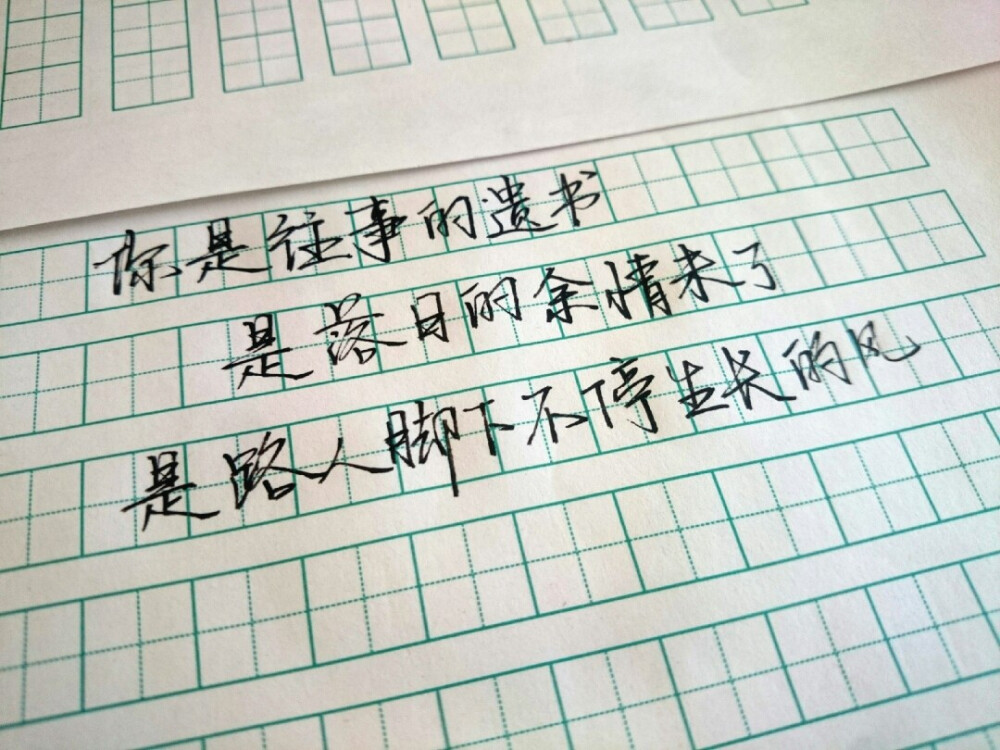 你是往事的遗书
是落日的余情未了
是路人脚下不停生长的风